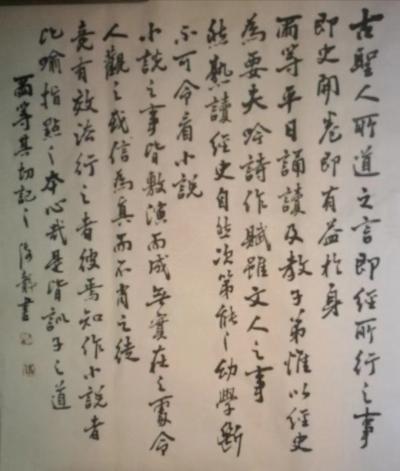 古聖人所道之言即經所行之事
即史開卷即有益於身
爾等平日誦讀及教子弟惟以經史
為要夫吟詩作賦雖文人之事
然熟讀經史自然次第能之幼學斷
不可令看小說
小說之事皆敷演而成無實在之處令
人觀之或信為真而不肖之徒
竟有效法行之者彼焉知作小說者
比喻指點之本心哉是皆訓子之道
爾等其切記之 書